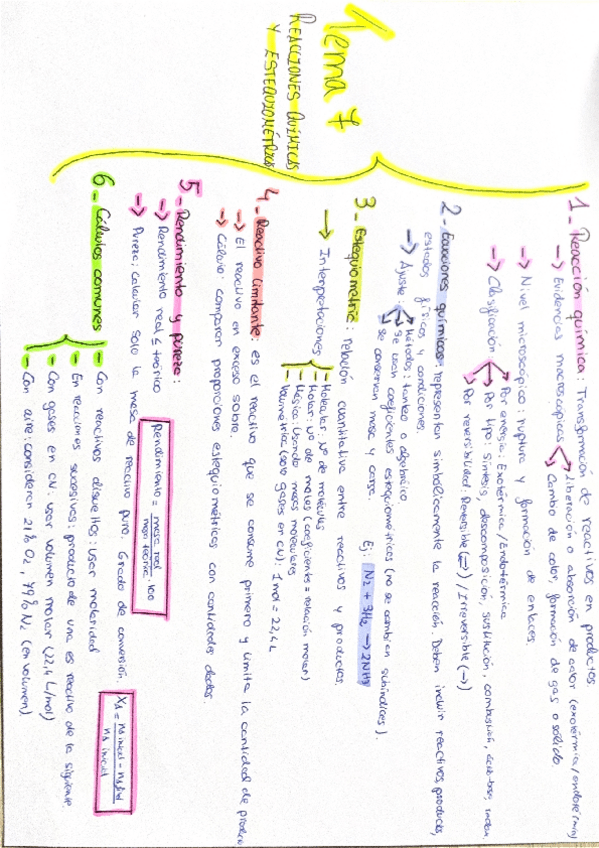 Tema 7
REACCIONES QUÍMICAS
Y ESTEQUIOMÉTRICAS
1- Reacción química: Transformación de reactivos en productos
→ Evidencias macroscópicas
Liberación o absorción de calor (exotérmica/endotérmica)
Cambio de color, formación de gas o sólido
→ Nivel microscópico: ruptura y formación de enlaces.
→ Clasificación
Por energía: Exotérmica/Endotérmica
Por tipo: Síntesis, descomposición, sustitución, combustión,
Por reversibilidad: Reversible (⇌) / Irreversible (→)
2- Ecuaciones químicas: representan simbólicamente la reacción. Deben incluir reactivos, productos,
estados físicos y condiciones.
→ Ajuste:
Métodos: tanteo o algebraico
Se usan coeficientes estequiométricos (no se cambian subíndices).
Se conservan masa y carga. Ej: N2 + 3H2 → 2NH3
3- Estequiometría: relación cuantitativa entre reactivos y productos.
→ Interpretaciones
Molecular: Nº de moléculas
Molar: Nº de moles (coeficientes = relación molar)
Másica: Usando masas moleculares
Volumétrica (solo gases en CN): 1 mol = 22,4L
4- Reactivo limitante: es el reactivo que se consume primero y limita la cantidad de
→ El reactivo en exceso sobra.
→ Cálculo: comparar proporciones estequiométricas con cantidades dadas.
5- Rendimiento y pureza:
→ Rendimiento real ≤ teórico
Rendimiento = masa real / masa teórica · 100
→ Pureza: calcular solo la masa de reactivo puro. Grado de conversión.
XA = nA inicial - nA final / nA inicial
6- Cálculos comunes
- Con reactivos disueltos: usar molaridad
- En reacciones sucesivas: producto de una es reactivo de la siguiente.
- Con gases en CN: usar volumen molar (22,4 L/mol)
- Con aire: consideran 21% O2, 79% N2 (en volumen)